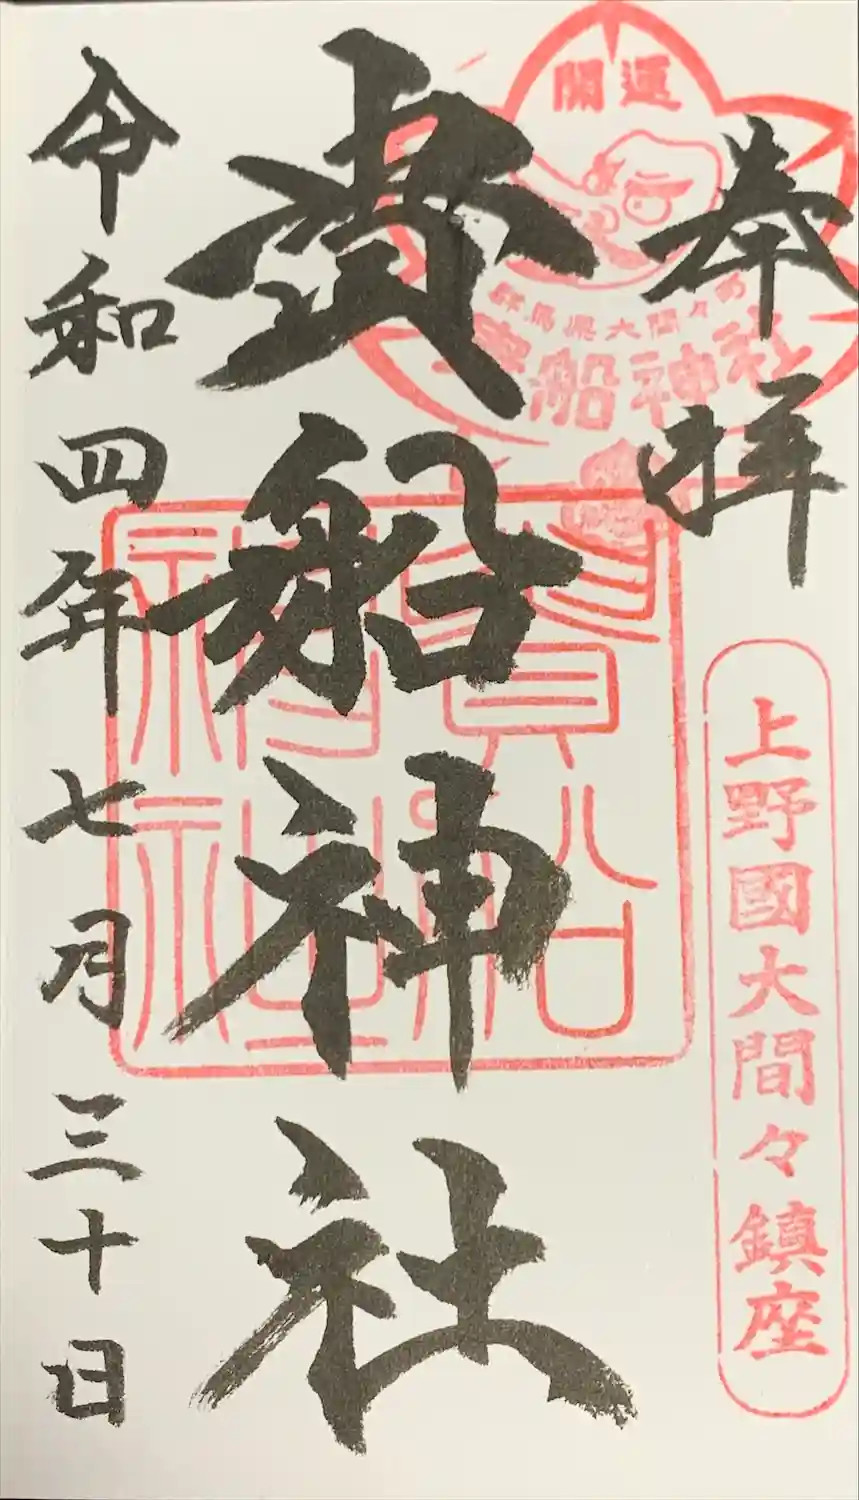 奉拝
開運
群馬県大間々町
貴船神社
上野國大間々鎮座
貴船神社
貴船
神社
令和四年七月三十日